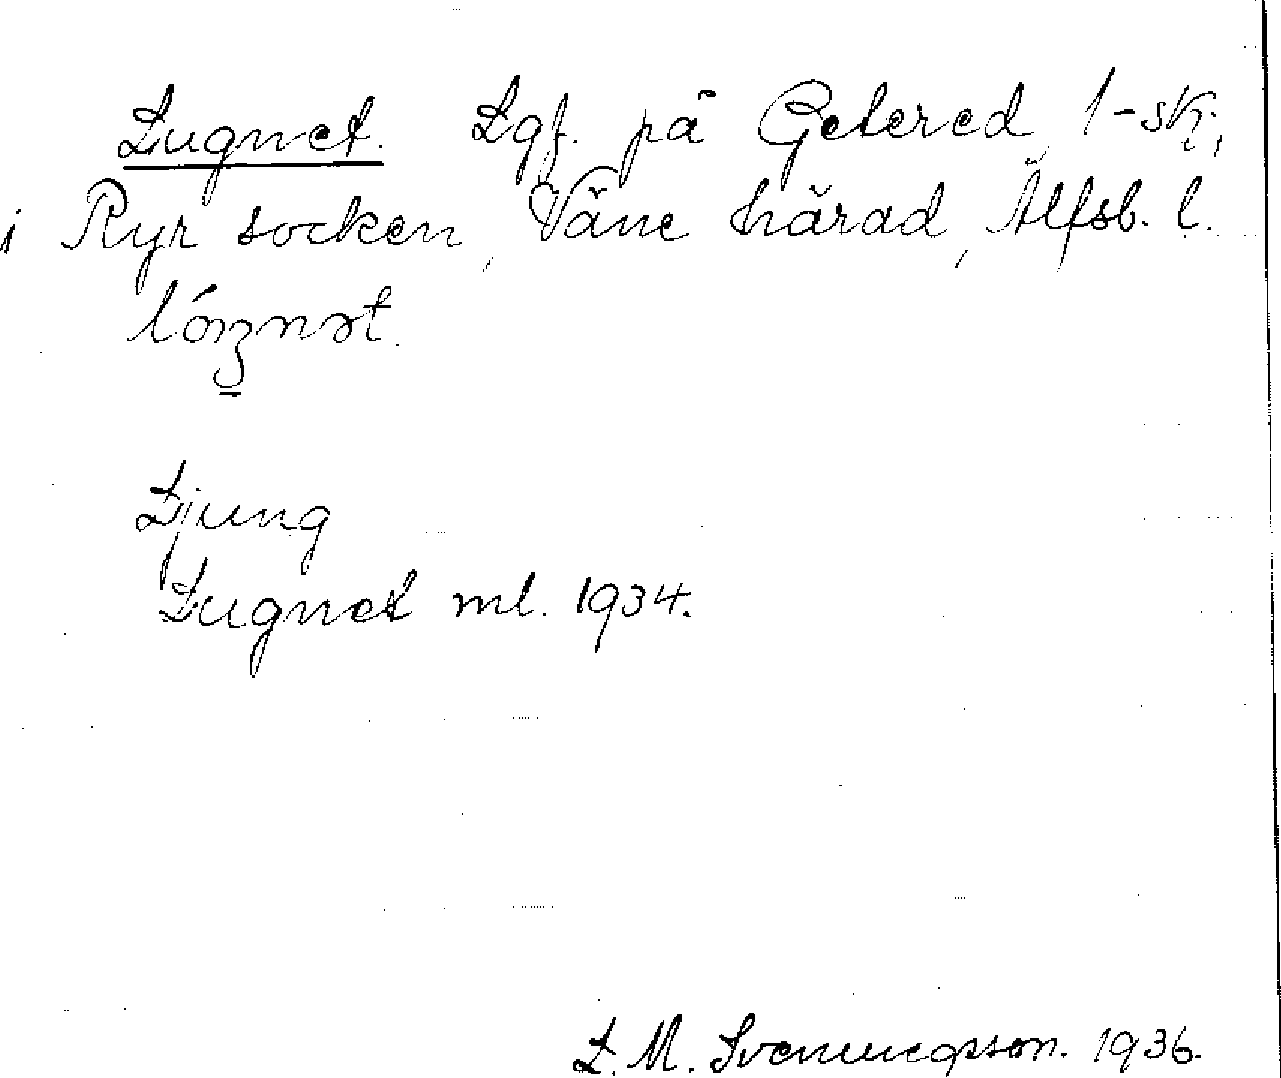 Lugnet. Lgf. på Getered 1-sk.,
i Ryr socken, Väne härad, Älfsb. l.
Ljung
Lugnet ml. 1934.
L. M. Svenungsson. 1936.